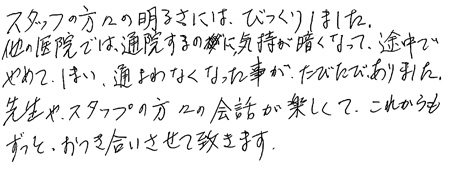 スタッフの方々の明るさには、びっくりしました。
他の医院では、通院するのに気持が暗くなって、途中で
やめて、しまい、通よわなくなった事が、たびたび、ありました。
先生や、スタップの方々の会話が楽しくて、これからも
ずっと、おつき合いさせて致きます.